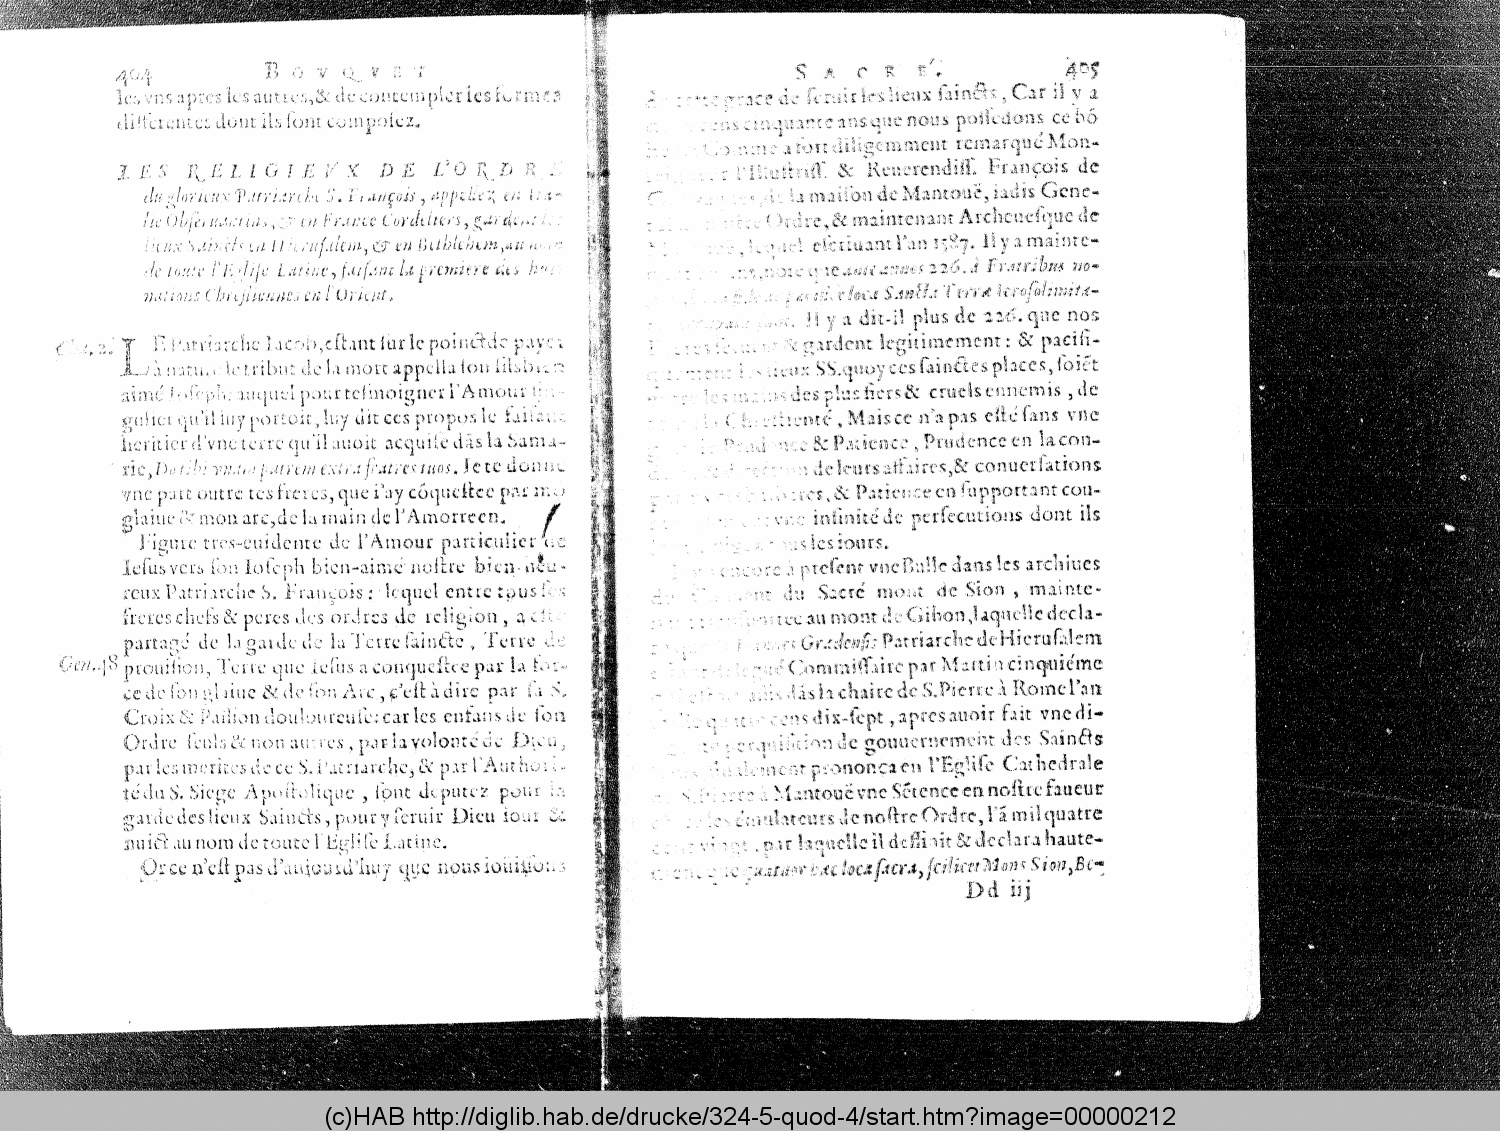 404 BOVQVET
les vns apres les autres, & de contempler les formes
differentes dont ils sont composez.
LES RELIGIEVX DE L'ORDRE
du glorieux Patriarche S. François, appellez en Ita-
lie Obseruantins, & en France Cordeliers, gardent les
lieux Saincts en Hierusalem, & en Bethlehem, au nom
de toute l'Eglise Latine, faisant la premiere des huit
nations Chrestiennes en l'Orient.
LE Patriarche Iacob, estant sur le poinct de payer
à nature le tribut de la mort appella son fils bien
aimé Ioseph, auquel pour tesmoigner l'Amour sin-
gulier qu'il luy portoit, luy dit ces propos le faisant
heritier d'vne terre qu'il auoit acquise dãs la Sama-
rie, Do tibi vnam partem extra fratres tuos. Ie te donne
vne part outre tes freres, que i'ay cõquestee par mõ
glaiue & mon arc, de la main de l'Amorreen.
Figure tres-euidente de l'Amour particulier de
Iesus vers son Ioseph bien-aimé nostre bien-heu-
reux Patriarche S. François: lequel entre tous ses
freres chefs & peres des ordres de religion, a esté
partagé de la garde de la Terre saincte, Terre de
Gen. 48 prouision, Terre que Iesus a conquestee par la for-
ce de son glaiue & de son Arc, c'est à dire par sa S.
Croix & Passion douloureuse: car les enfans de son
Ordre seuls & non autres, par la volonté de Dieu,
par les merites de ce S. Patriarche, & par l'Authori-
té du S. Siege Apostolique, sont deputez pour la
garde des lieux Saincts, pour y seruir Dieu iour &
nuict au nom de toute l'Eglise Latine.
Or ce n'est pas d'auiourd'huy que nous iouissons
SACRE'. 405
de cette grace de seruir les lieux saincts, Car il y a
cens cinquante ans que nous possedons ce bõ
Comme a fort diligemment remarqué Mon-
l'Illustriss. & Reuerendiss. François de
de la maison de Mantouë, iadis Gene-
Ordre, & maintenant Archeuesque de
, lequel escriuant l'an 1587. Il y a mainte-
ans, note que ante annos 226. à Fratribus no-
loca Sancta Terræ Ierosolimita-
Il y a dit-il plus de 226. que nos
& gardent legitimement: & pacifi-
lieux SS. quoy ces sainctes places, soiẽt
les mains des plus fiers & cruels ennemis, de
la Chrestienté, Mais ce n'a pas esté sans vne
Prudence & Patience, Prudence en la con-
de leurs affaires, & conuersations
& Patience en supportant cou-
vne infinité de persecutions dont ils
les iours.
encore à present vne Bulle dans les archiues
du Sacré mont de Sion, mainte-
au mont de Gihon, laquelle decla-
Gradensis Patriarche de Hierusalem
Commissaire par Martin cinquiéme
dãs la chaire de S. Pierre à Rome l'an
cens dix-sept, apres auoir fait vne di-
perquisition de gouuernement des Saincts
prononça en l'Eglise Cathedrale
S. Pierre à Mantouë vne Sẽtence en nostre faueur
les émulateurs de nostre Ordre, l'ã mil quatre
cens vingt, par laquelle il deffinit & declara haute-
quatuor hæc loca sacra, scilicet Mons Sion, Be-
Dd iij
(c)HAB http://diglib.hab.de/drucke/324-5-quod-4/start.htm?image=00000212